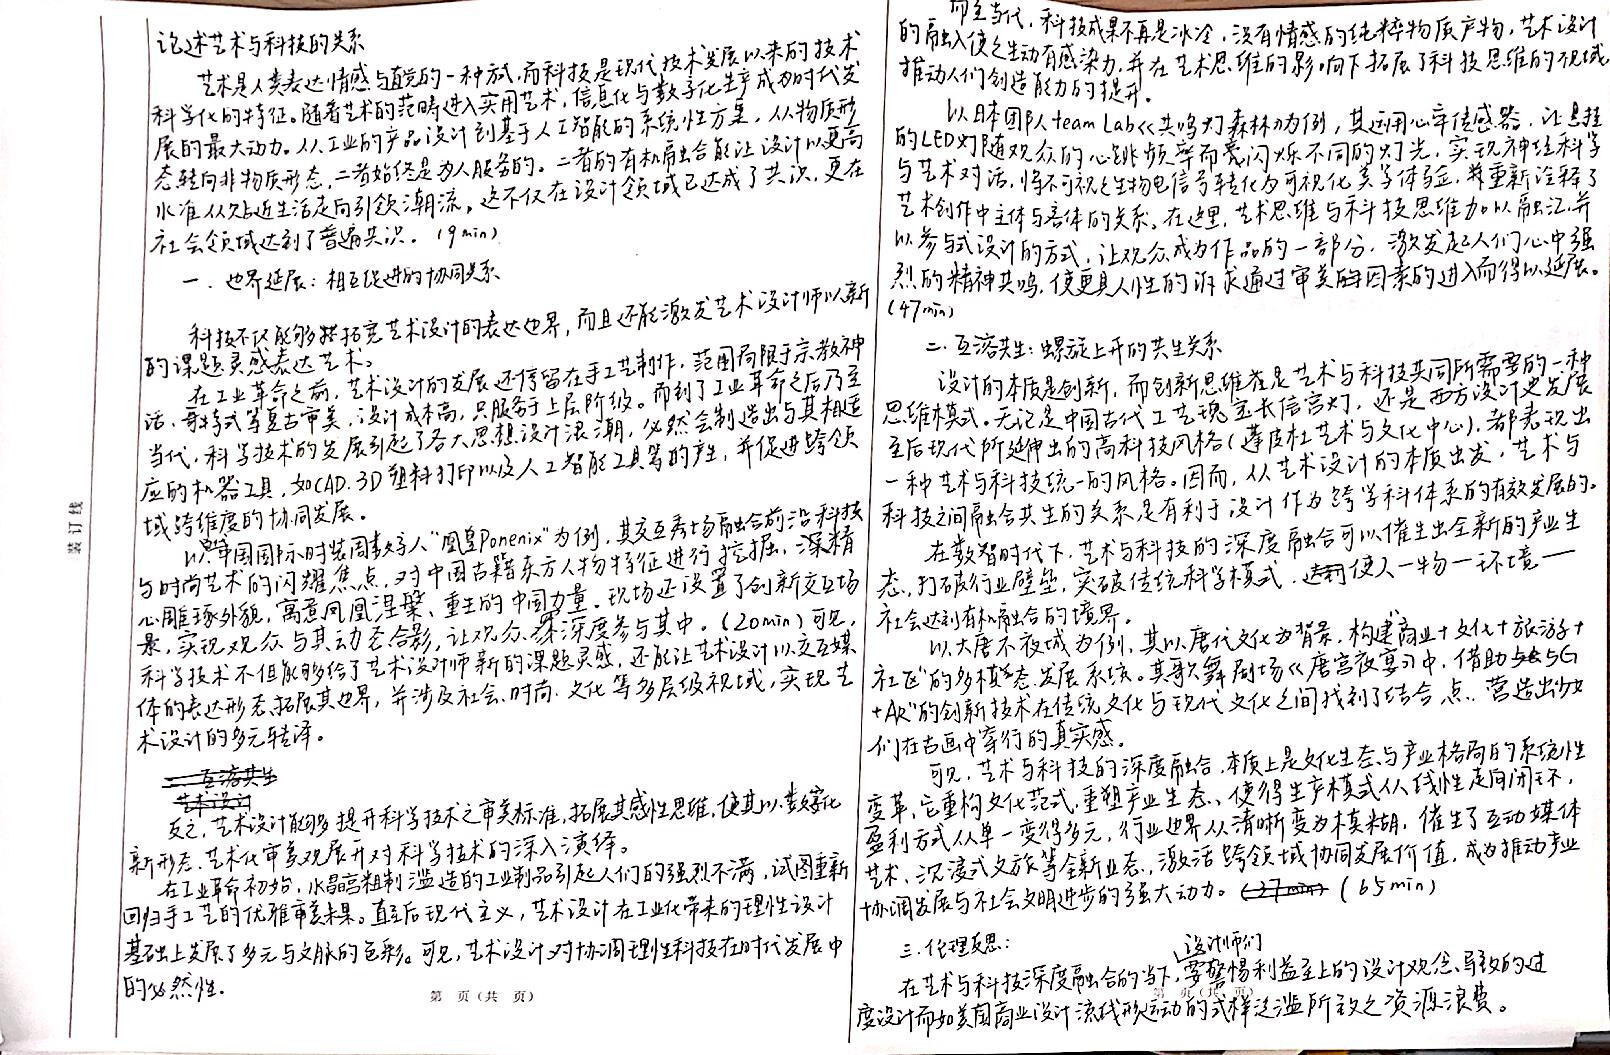 论述艺术与科技的关系
艺术是人类表达情感与直觉的一种方式,而科技是现代技术发展以来的技术
科学化的特征。随着艺术的范畴进入实用艺术,信息化与数字化生产成为时代发
展的最大动力。从工业的产品设计到基于人工智能的系统性方案,从物质形
态转向非物质形态,二者始终是为人服务的。二者的有机融合能让设计以更高
水准从贴近生活走向引领潮流,这不仅在设计领域已达成了共识,更在
社会领域达到了普遍共识。(9min)
一、边界延展:相互促进的协同关系
科技不仅能够拓宽艺术设计的表达边界,而且还能激发艺术设计师以新
的课题灵感表达艺术。
在工业革命之前,艺术设计的发展还停留在手工艺制作,范围局限于宗教神
话、哥特式等复古审美,设计成本高,只服务于上层阶级。而到了工业革命之后乃至
当代,科学技术的发展引起了各大思想设计浪潮,必然会制造出与其相适
应的机器工具,如CAD、3D塑料打印以及人工智能工具等的产生,并促进跨领
域跨维度的协同发展。
以中国国际时装周数字人“凰Phoenix”为例,其交互秀场融合前沿科技
与时尚艺术的闪耀焦点,对中国古籍东方人物特征进行挖掘,深精
心雕琢外貌,寓意凤凰涅槃、重生的中国力量。现场还设置了创新交互场
景,实现观众与其动态合影,让观众深度参与其中。(20min)可见,
科学技术不但能够给了艺术设计师新的课题灵感,还能让艺术设计以交互媒
体的表达形态拓展其边界,并涉及社会、时尚、文化等多层级视域,实现艺
术设计的多元转译。
二、互溶共生
艺术设计
反之,艺术设计能够提升科学技术之审美标准,拓展其感性思维,使其以数字化
新形态、艺术化审美观展开对科学技术的深入演绎。
在工业革命初始,水晶宫粗制滥造的工业制品引起人们的强烈不满,试图重新
回归手工艺的优雅审美。直至后现代主义,艺术设计在工业化带来的理性设计
基础上发展了多元与文脉的色彩。可见,艺术设计对协调理性科技在时代发展中
的必然性.
第 页(共 页)
装订线
而至当代,科技成果不再是冰冷,没有情感的纯粹物质产物,艺术设计
的融入使之生动有感染力,并在艺术思维的影响下拓展了科技思维的视域,
推动人们创造能力的提升。
以日本团队teamLab《共鸣灯森林》为例,其运用心率传感器,让悬挂
的LED灯随观众的心跳频率而闪烁不同的灯光,实现神经科学
与艺术对话,将不可视之生物电信号转化为可视化美学体验,并重新诠释了
艺术创作中主体与客体的关系。在这里,艺术思维与科技思维加以融汇,并
以参与式设计的方式,让观众成为作品的一部分,激发起人们心中强
烈的精神共鸣,使更具人性的诉求通过审美因素的进入而得以延展。
(47min)
二、互溶共生:螺旋上升的共生关系
设计的本质是创新,而创新思维是艺术与科技共同所需要的一种
思维模式。无论是中国古代工艺瑰宝长信宫灯,还是西方设计史发展
至后现代所延伸出的高科技风格(蓬皮杜艺术与文化中心),都表现出
一种艺术与科技统一的风格。因而,从艺术设计的本质出发,艺术与
科技之间融合共生的关系是有利于设计作为跨学科体系的有效发展的。
在数智时代下,艺术与科技的深度融合可以催生出全新的产业生
态,打破行业壁垒,突破传统科学模式,使人一物一环境一
社会达到有机融合的境界。
以大唐不夜城为例,其以唐代文化为背景,构建“商业+文化+旅游+
社区”的多模态发展系统。其歌舞剧场《唐宫夜宴》中,借助“5G
+AR”的创新技术在传统文化与现代文化之间找到了结合点,营造出少女
们在古画中穿行的真实感。
可见,艺术与科技的深度融合,本质上是文化生态与产业格局的系统性
变革,它重构文化范式,重塑产业生态,使得生产模式从线性走向闭环,
盈利方式从单一变得多元,行业边界从清晰变为模糊,催生了互动媒体
艺术、沉浸式文旅等全新业态,激活跨领域协同发展价值,成为推动产业
协调发展与社会文明进步的强大动力。(37min)(65min)
三、伦理反思:
在艺术与科技深度融合的当下,设计师们要警惕利益至上的设计观念导致的过
度设计而如美国商业设计流线形运动的式样泛滥所致之资源浪费。
第 页(共 页)